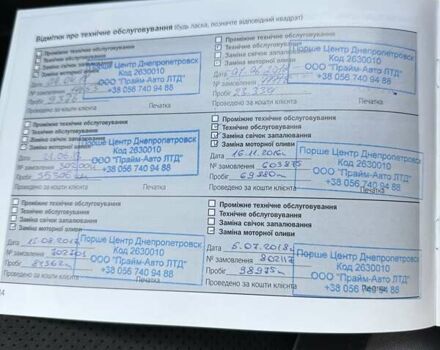 Відмітки про технічне обслуговування (будь ласка, позначте відповідний квадрат)
Проміжне технічне обслуговування
Технічне обслуговування
Заміна свічок запалювання
Заміна моторної оливи
Порше Центр Дніпропетровск
Код 2630010
ООО "Прайм-Авто ЛТД"
+38 056 740 94 88
Дата
№ замовлення
Пробіг
Проведено за кошти клієнта
Печатка
Проміжне технічне обслуговування
Технічне обслуговування
Заміна свічок запалювання
Заміна моторної оливи
Порше Центр Дніпропетровск
Код 2630010
ООО "Прайм-Авто ЛТД"
+38 056 740 94 88
Дата
№ замовлення
Пробіг
Проведено за кошти клієнта
Печатка
Проміжне технічне обслуговування
Технічне обслуговування
Заміна свічок запалювання
Заміна моторної оливи
Порше Центр Дніпропетровск
Код 2630010
ООО "Прайм-Авто ЛТД"
+38 056 740 94 88
Дата
№ замовлення
Пробіг
Проведено за кошти клієнта
Печатка
Проміжне технічне обслуговування
Технічне обслуговування
Заміна свічок запалювання
Заміна моторної оливи
Порше Центр Дніпропетровск
Код 2630010
ООО "Прайм-Авто ЛТД"
+38 056 740 94 88
Дата 16.11.2016
№ замовлення 603875
Пробіг
Проведено за кошти клієнта
Проміжне технічне обслуговування
Технічне обслуговування
Заміна свічок запалювання
Заміна моторної оливи
Порше Центр Дніпропетровск
Код 2630010
ООО "Прайм-Авто ЛТД"
+38 056 740 94 88
Дата 15.08.2017
№ замовлення
Пробіг
Проведено за кошти клієнта
Печатка
Проміжне технічне обслуговування
Технічне обслуговування
Заміна свічок запалювання
Заміна моторної оливи
Порше Центр Дніпропетровск
Код 2630010
ООО "Прайм-Авто ЛТД"
+38 056 740 94 88
Дата 5.07.2018
№ замовлення
Пробіг 98975
Проведено за кошти клієнта
Печатка